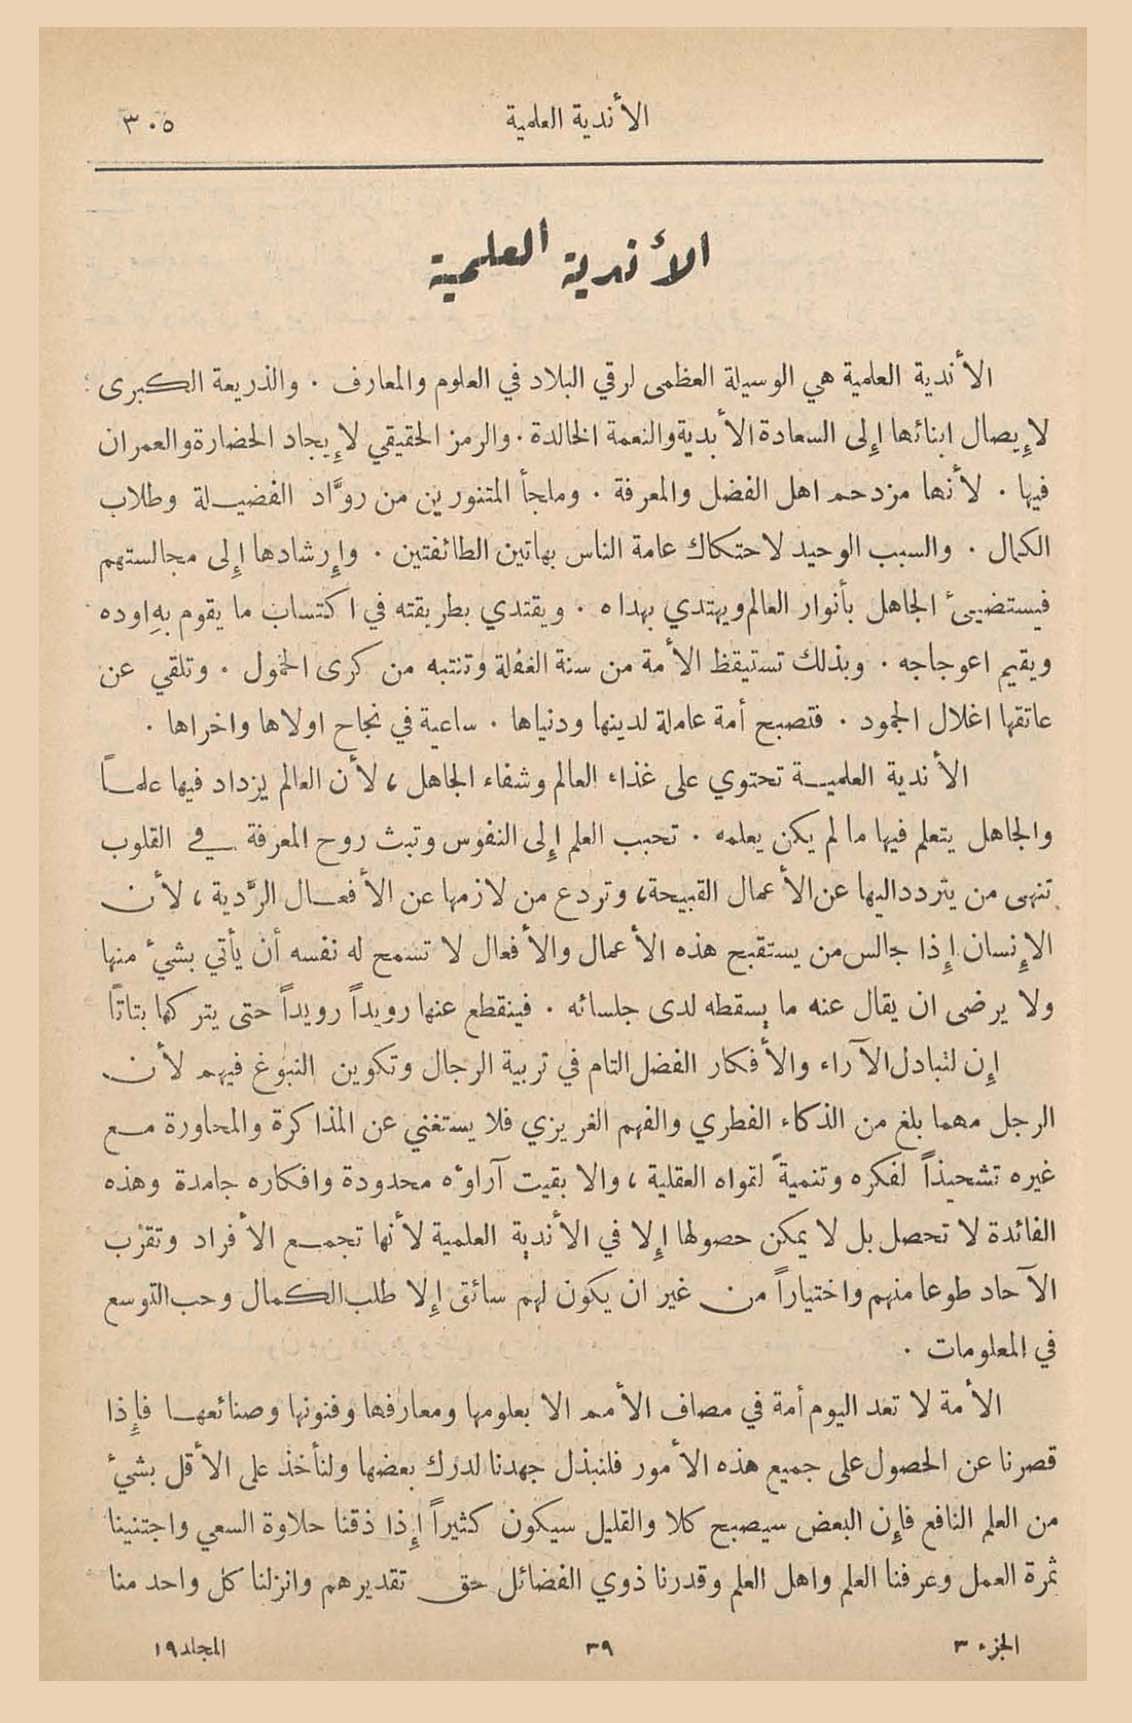 الأندية العلمية
٣٠٥
الأندية العلمية
الأندية العلمية هي الوسيلة العظمى لرقي البلاد في العلوم والمعارف . والذريعة الكبرى
لإيصال ابنائها إلى السعادة الأبدية والنعمة الخالدة . والرمز الحقيقي لإيجاد الحضارة والعمران
فيها . لأنها مزدحم اهل الفضل والمعرفة . وملجأ المتنورين من روَّاد الفضيلة وطلاب
الكمال . والسبب الوحيد لاحتكاك عامة الناس بهاتين الطائفتين . وإرشادها إلى مجالستهم
فيستضيئ الجاهل بأنوار العالم ويهتدي بهداه . ويقتدي بطريقته في اكتساب ما يقوم بهِ اوده
ويقيم اعوجاجه . وبذلك تستيقظ الأمة من سنة الغفلة وتنتبه من كرى الخمول . وتلقي عن
عاتقها اغلال الجمود . فتصبح أمة عاملة لدينها ودنياها . ساعية في نجاح اولاها واخراها .
الأندية العلميــة تحتوي على غذاء العالم وشفاء الجاهل ، لأن العالم يزداد فيها علمــاً
والجاهل يتعلم فيها ما لم يكن يعلمه . تحبب العلم إلى النفوس وتبث روح المعرفة في القلوب
تنهى من يتردد اليها عن الأعمال القبيحة، وتردع من لازمها عن الأفعــال الرَّدية ، لأن
الإنسان إذا جالس من يستقبح هذه الأعمال والأفعال لا تسمح له نفسه أن يأتي بشيءٍ منها
ولا يرضى ان يقال عنه ما يسقطه لدى جلسائه . فينقطع عنها رويداً رويداً حتى يتركها بتاتًا
إن لتبادل الآراء والأفكار الفضل التام في تربية الرجال وتكوين النبوغ فيهم لأن
الرجل مهما بلغ من الذكاء الفطري والفهم الغريزي فلا يستغني عن المذاكرة والمحاورة مــع
غيره تشحيذاً لفكره وتنميةً لقواه العقلية ، والا بقيت آراؤه محدودة وافكاره جامدة وهذه
الفائدة لا تحصل بل لا يمكن حصولها إلا في الأندية العلمية لأنها تجمــع الأفراد وتقرب
الآحاد طوعا منهم واختياراً من غير ان يكون لهم سائق إلا طلب الكمال وحب التوسع
في المعلومات .
الأمة لا تعد اليوم أمة في مصاف الأمم الا بعلومها ومعارفها وفنونها وصنائعهــا فإذا
قصرنا عن الحصول على جميع هذه الأمور فلنبذل جهدنا لدرك بعضها ولنأخذ على الأقل بشيءٍ
من العلم النافع فإن البعض سيصبح كلا والقليل سيكون كثيراً إذا ذقنا حلاوة السعي واجتنينا
ثمرة العمل وعرفنا العلم واهل العلم وقدرنا ذوي الفضائل حق تقديرهم وانزلنا كل واحد منا
الجزء ٣
٣٩
المجلد ١٩